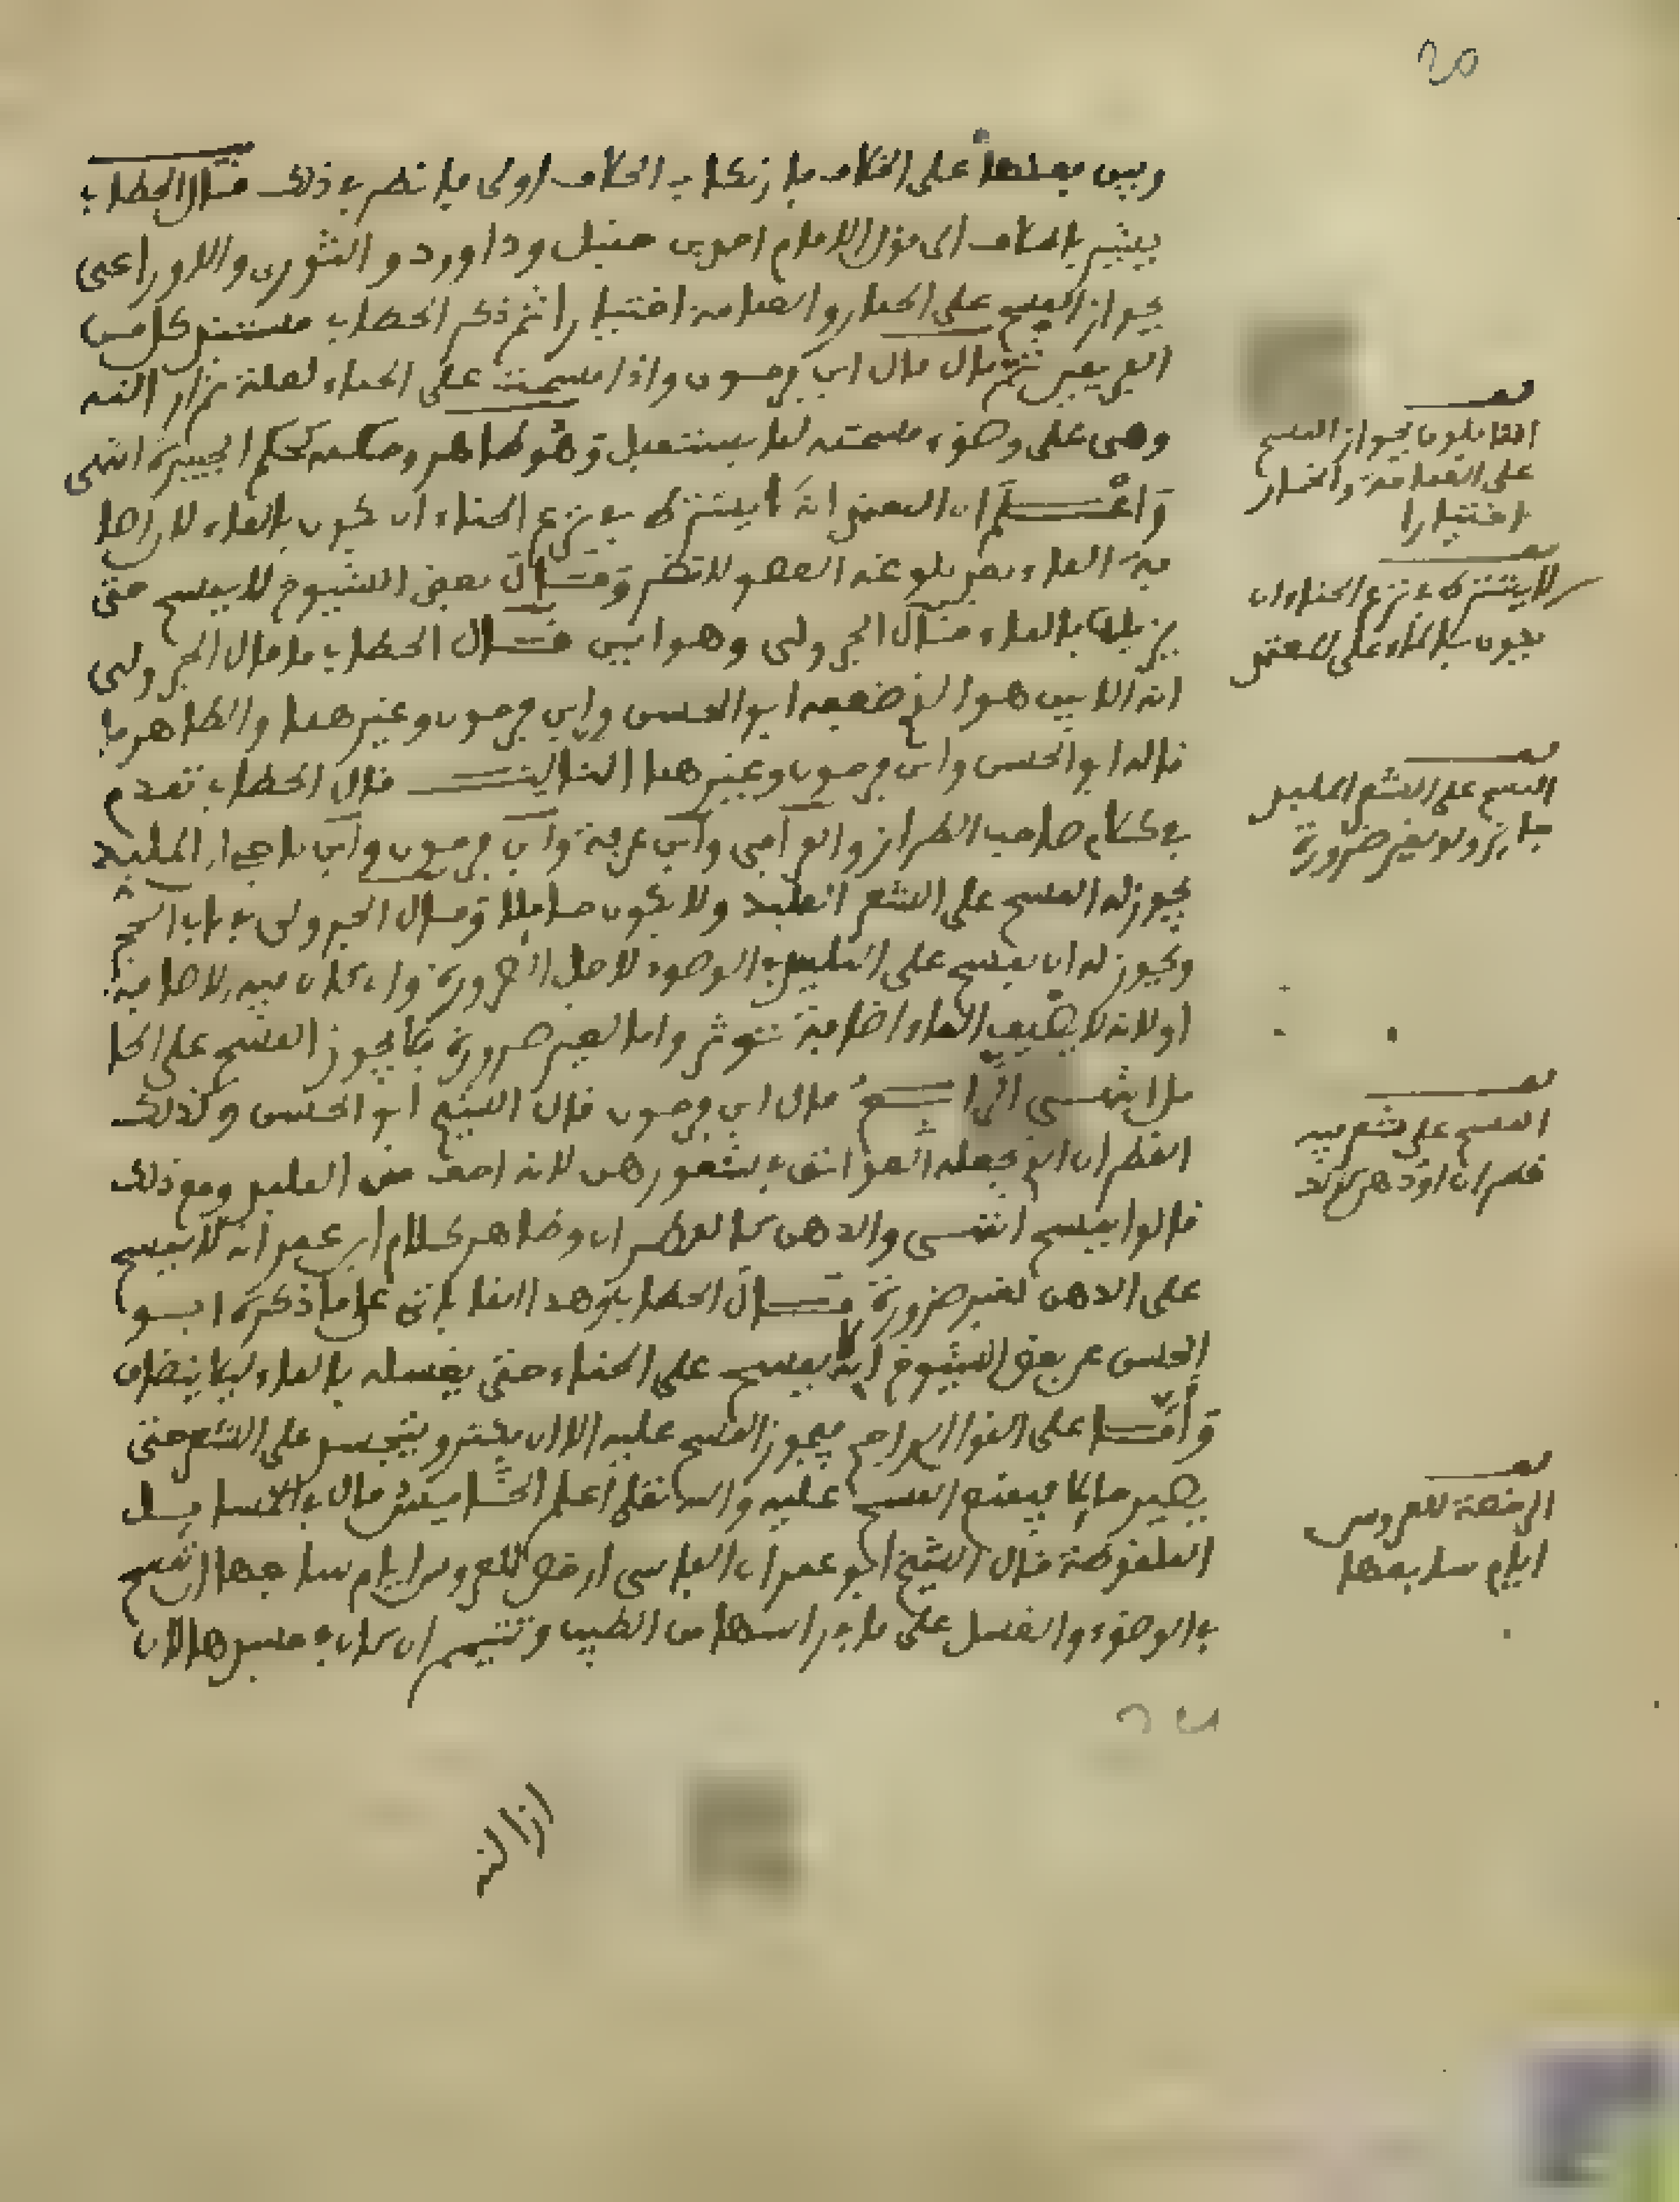 وبين فعلها على الخلاف فارتكاب الخلاف اولى فانظر في ذلك قال الحطاب
يشير بالخلاف الى قول الامام احمد بن حنبل وداوود والثوري والاوزاعي
بجواز المسح على الخمار والعمامة اختيارا ثم ذكر الحطاب مستند كل من
الفريقين ثم قال قال ابن فرحون واذا مسحت على الحناء لعلة ثم ازالته
وهي على وضوء مسحته لما يستقبل وهو ظاهر وحكمه كحكم الجبيرة انتهى
واعلم ان المعتمد انه لا يشترط في نزع الحناء ان يكون بالماء
الماء العضو وقال بعض الشيوخ لا يمسح حتى
يزيلها بالماء قال الجزولي وهو ابين قال الحطاب ما قال الجزولي
انه الابين هو الذي ضعفه ابو الحسن وابن فرحون وغيرهما والظاهر ما
قاله ابو الحسن وابن فرحون وغيرهما الثالث قال الحطاب تقدم
في كلام صاحب الطراز والقرافي وابن عرفة وابن فرحون وابن ناجي ان الملبد
يجوز له المسح على الشعر الملبد ولا يكون حائلا وقال الجزولي في باب الحج
ويجوز له ان يمسح على التلبيد في الوضوء لاجل الضرورة وان كان فيه الاضافة
اولانه لا يضيف الماء اضافة تؤثر واما لغير ضرورة فلا يجوز المسح على الحا
ئل انتهى الرابع قال ابن فرحون قال الشيخ ابو الحسن وكذلك
القطران الذي يجعله العواتق في شعورهن لانه اخف من التلبيد ومع ذلك
قالوا يمسح انتهى والدهن كالقطران وظاهر كلام ابي عمر انه لا يمسح
على الدهن لغير ضرورة قال الحطاب وهذا انما ياتي على ما ذكره ابو
الحسن عن بعض الشيوخ انه لا يمسح على الحناء حتى يغسله بالماء ليلا ينضاف
واما على القول الراجح فيجوز المسح عليه الا ان يكثر ويتجسد على الشعر حتى
يصير حائلا فيمنع المسح عليه والله تعالى اعلم الخامس قال في المسائل
الملقوطة قال الشيخ ابو عمران الفاسي ارخص للعروس ايام سابعها ان تمسح
في الوضوء والغسل على ما في راسها من الطيب وتتيمم ان كان في جسدها لان
ازالته
القائلون بجواز المسح
على العمامة والخمار
اختيارا
لا يشترط في نزع الحناء ان
يكون بالماء على المعتمد
المسح على الشعر الملبد
جائز ولو لغير ضرورة
المسح على شعر فيه
قطران او دهن
الرخصة للعروس
ايام سابعها